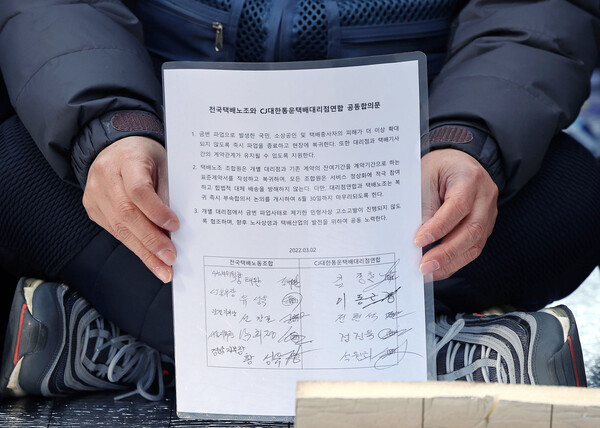 전국택배노조와 CJ대한통운택배대리점연합 공동합의문
1. 금번 파업으로 발생한 국민, 소상공인 및 택배종사자의 피해가 더 이상 확대
되지 않도록 즉시 파업을 종료하고 현장에 복귀한다. 또한 대리점과 택배기사
간의 계약관계가 유지될 수 있도록 지원한다.
2. 택배노조 조합원은 개별 대리점과 기존 계약의 잔여기간을 계약기간으로 하는
표준계약서를 작성하고 복귀하며, 모든 조합원은 서비스 정상화에 적극 참여
하고 합법적 대체 배송을 방해하지 않는다. 다만, 대리점연합과 택배노조는 복
귀 즉시 부속합의서 논의를 개시하며 6월 30일까지 마무리되도록 한다.
3. 개별 대리점에서 금번 파업사태로 제기한 민형사상 고소고발이 진행되지 않도
록 협조하며, 향후 노사상생과 택배산업의 발전을 위하여 공동 노력한다.
2022.03.02
전국택배노동조합 CJ대한통운택배대리점연합
유성욱 이